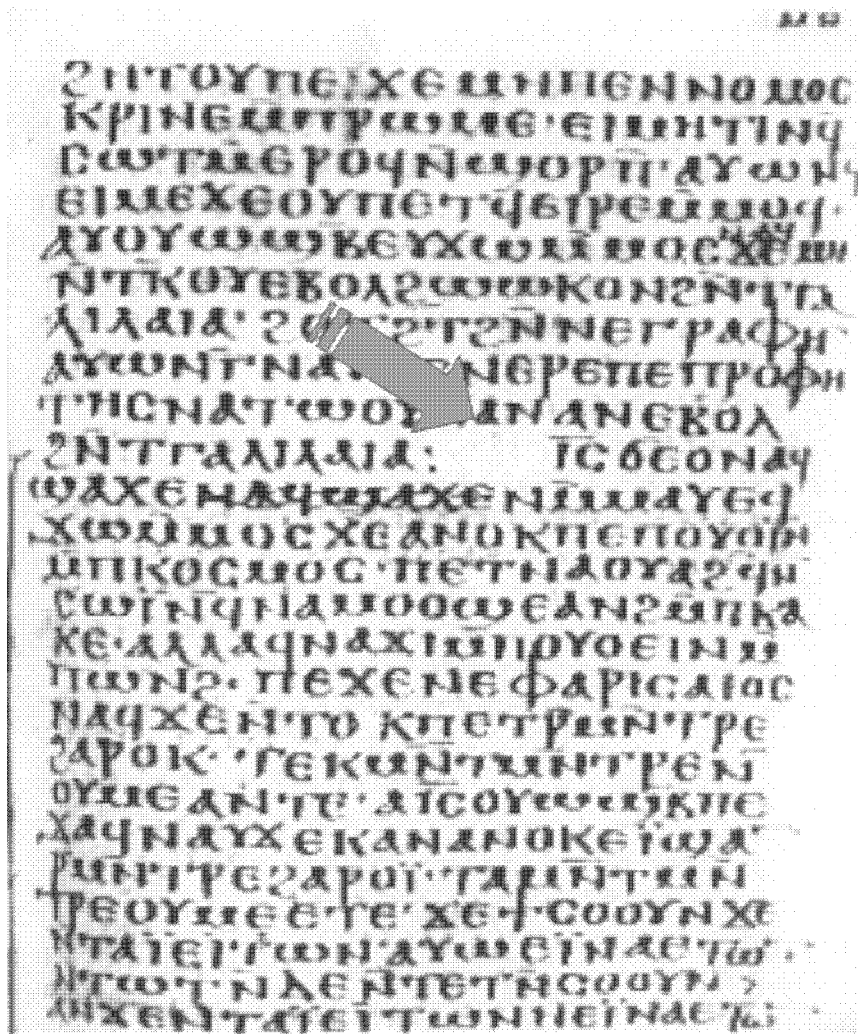 ϩⲏⲧⲟⲩⲡⲉ· ϫⲉⲙⲏⲡⲉⲛⲛⲟⲙⲟⲥ
ⲕⲣⲓⲛⲉⲙ̄ⲡⲣⲱⲙⲉ·ⲉⲓⲙⲏⲧⲓⲛϥ
ⲥⲱⲧⲙ̄ⲉⲣⲟϥⲛ̄ϣⲟⲣⲡ̄·ⲁⲩⲱⲛϥ
ⲉⲓⲙⲉϫⲉⲟⲩⲡⲉⲧϥ̄ⲉⲓⲣⲉⲙ̄ⲙⲟϥ·
ⲁⲩⲟⲩⲱϣⲃⲉⲩϫⲱⲙ̄ⲙⲟⲥϫⲉⲙⲏ
ⲛ̄ⲧⲕ̄ⲟⲩⲉⲃⲟⲗϩⲱⲱⲕⲟⲛϩⲛ̄ⲧⲅⲁ
ⲗⲓⲗⲁⲓⲁ· ϩⲛ̄ⲛⲉⲅⲣⲁⲫⲏ
ⲁⲩⲱⲛⲅ̄ⲛⲁ ⲛⲉⲣⲉⲡⲉⲡⲣⲟⲫⲏ
ⲧⲏⲥⲛⲁⲧⲱⲟⲩ ⲁⲛ ⲁⲛⲉⲃⲟⲗ
ϩⲛ̄ⲧⲅⲁⲗⲓⲗⲁⲓⲁ: ⲓ̄ⲥ̄ϭⲉⲟⲛⲁϥ
ϣⲁϫⲉⲛⲁϥϣⲁϫⲉⲛⲙ̄ⲙⲁⲩⲉϥ
ϫⲱⲙ̄ⲙⲟⲥϫⲉⲁⲛⲟⲕⲡⲉⲡⲟⲩⲟⲉⲓⲛ
ⲙ̄ⲡⲕⲟⲥⲙⲟⲥ·ⲡⲉⲧⲛⲁⲟⲩⲁϩϥⲛ̄
ⲥⲱⲓ̈ⲛ̄ϥⲛⲁⲙⲟⲟϣⲉⲁⲛϩⲙ̄ⲡⲕⲁ
ⲕⲉ·ⲁⲗⲗⲁϥⲛⲁϫⲓⲙ̄ⲡⲟⲩⲟⲉⲓⲛⲙ̄
ⲡⲱⲛϩ̄· ⲡⲉϫⲉⲛⲉⲫⲁⲣⲓⲥⲁⲓⲟⲥ
ⲛⲁϥϫⲉⲛ̄ⲧⲟⲕⲡⲉⲧⲣ̄ⲙⲛ̄ⲧⲣⲉ
ϩⲁⲣⲟⲕ· ⲧⲉⲕⲙⲛ̄ⲧⲙⲛ̄ⲧⲣⲉⲛ
ⲟⲩⲙⲉⲁⲛⲧⲉ·ⲁⲓ̄ⲥ̄ⲟⲩⲱϣⲃ̄ⲡⲉ
ϫⲁϥⲛⲁⲩϫⲉⲕⲁⲛⲁⲛⲟⲕⲉⲓ̈ϣⲁ
ⲣ̄ⲙⲛ̄ⲧⲣⲉϩⲁⲣⲟⲓ̈· ⲧⲁⲙⲛ̄ⲧⲙⲛ̄
ⲧⲣⲉⲟⲩⲙⲉⲉⲧⲉ· ϫⲉϯⲥⲟⲟⲩⲛϫⲉ
ⲛ̄ⲧⲁⲓ̈ⲉⲓⲧⲱⲛ·ⲁⲩⲱⲉⲓ̈ⲛⲁⲉⲧⲱ
ⲛ̄ⲧⲱⲧⲛ̄ⲇⲉⲛ̄ⲧⲉⲧⲛ̄ⲥⲟⲟⲩⲛ
ⲁⲛϫⲉⲛ̄ⲧⲁⲓ̈ⲉⲓⲧⲱⲛⲏⲉⲓ̈ⲛⲁⲉⲧⲱ